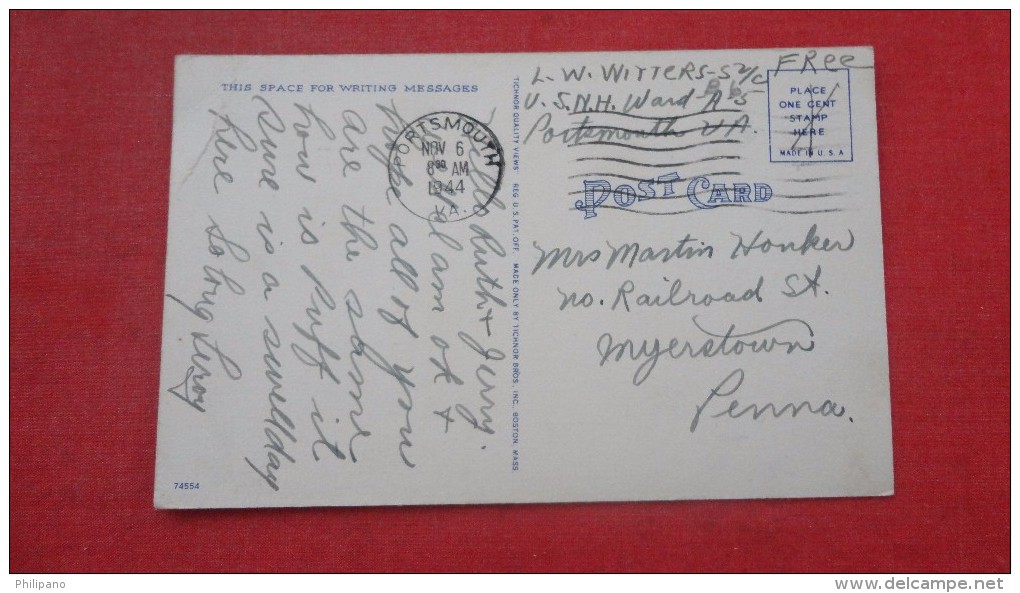 THIS SPACE FOR WRITING MESSAGES
Hello Ruth & Jerry.
I am ok &
hope all of you
are the same
how is Puff it
Sure is a swell day
here So long Leroy
74554
TICHNOR QUALITY VIEWS REG. U.S. PAT. OFF. MADE ONLY BY TICHNOR BROS., INC., BOSTON, MASS.
PORTSMOUTH
NOV 6
8 30 AM
1944
VA.
L. W. WITTERS - S 2/C
U. S. N. H. Ward
Portsmouth VA.
FREE
PLACE
ONE CENT
STAMP
HERE
MADE IN U.S.A
POST CARD
Mrs Martin Honker
no. Railroad St.
Myerstown
Penna.
Philipano
www.delcampe.net